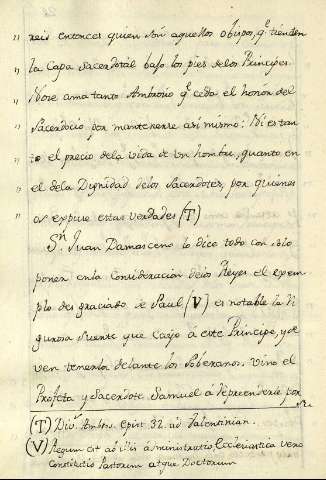 reis entonces quien son aquellos obispos, qe tienden
la Capa Sacerdotal bajo los pies delos Principes.
No se ama tanto Ambrosio qe ceda el honor del
Sacerdocio por mantenerse asi mismo: Ni es tan
to el precio dela vida de un hombre, quanto en
el dela Dignidad delos Sacerdotes, por quienes
os expuse estas verdades (T)
Sn. Juan Damasceno lo dice todo con solo
poner en la Consideracion delos Reyes el exem
plo desgraciado de Saul (V) es notable la Ri
gurosa suerte que Cayó á este Principe, y de
ven temerla delante los Soberanos. Vino el
Profeta y Sacerdote Samuel á Reprenderle por
(T) Div. Ambro. epist. 32. ad Valentinian.
(V) Regum est ab illis administratio, Ecclesiastica vero
Constitutio Pastorum atque Doctorum